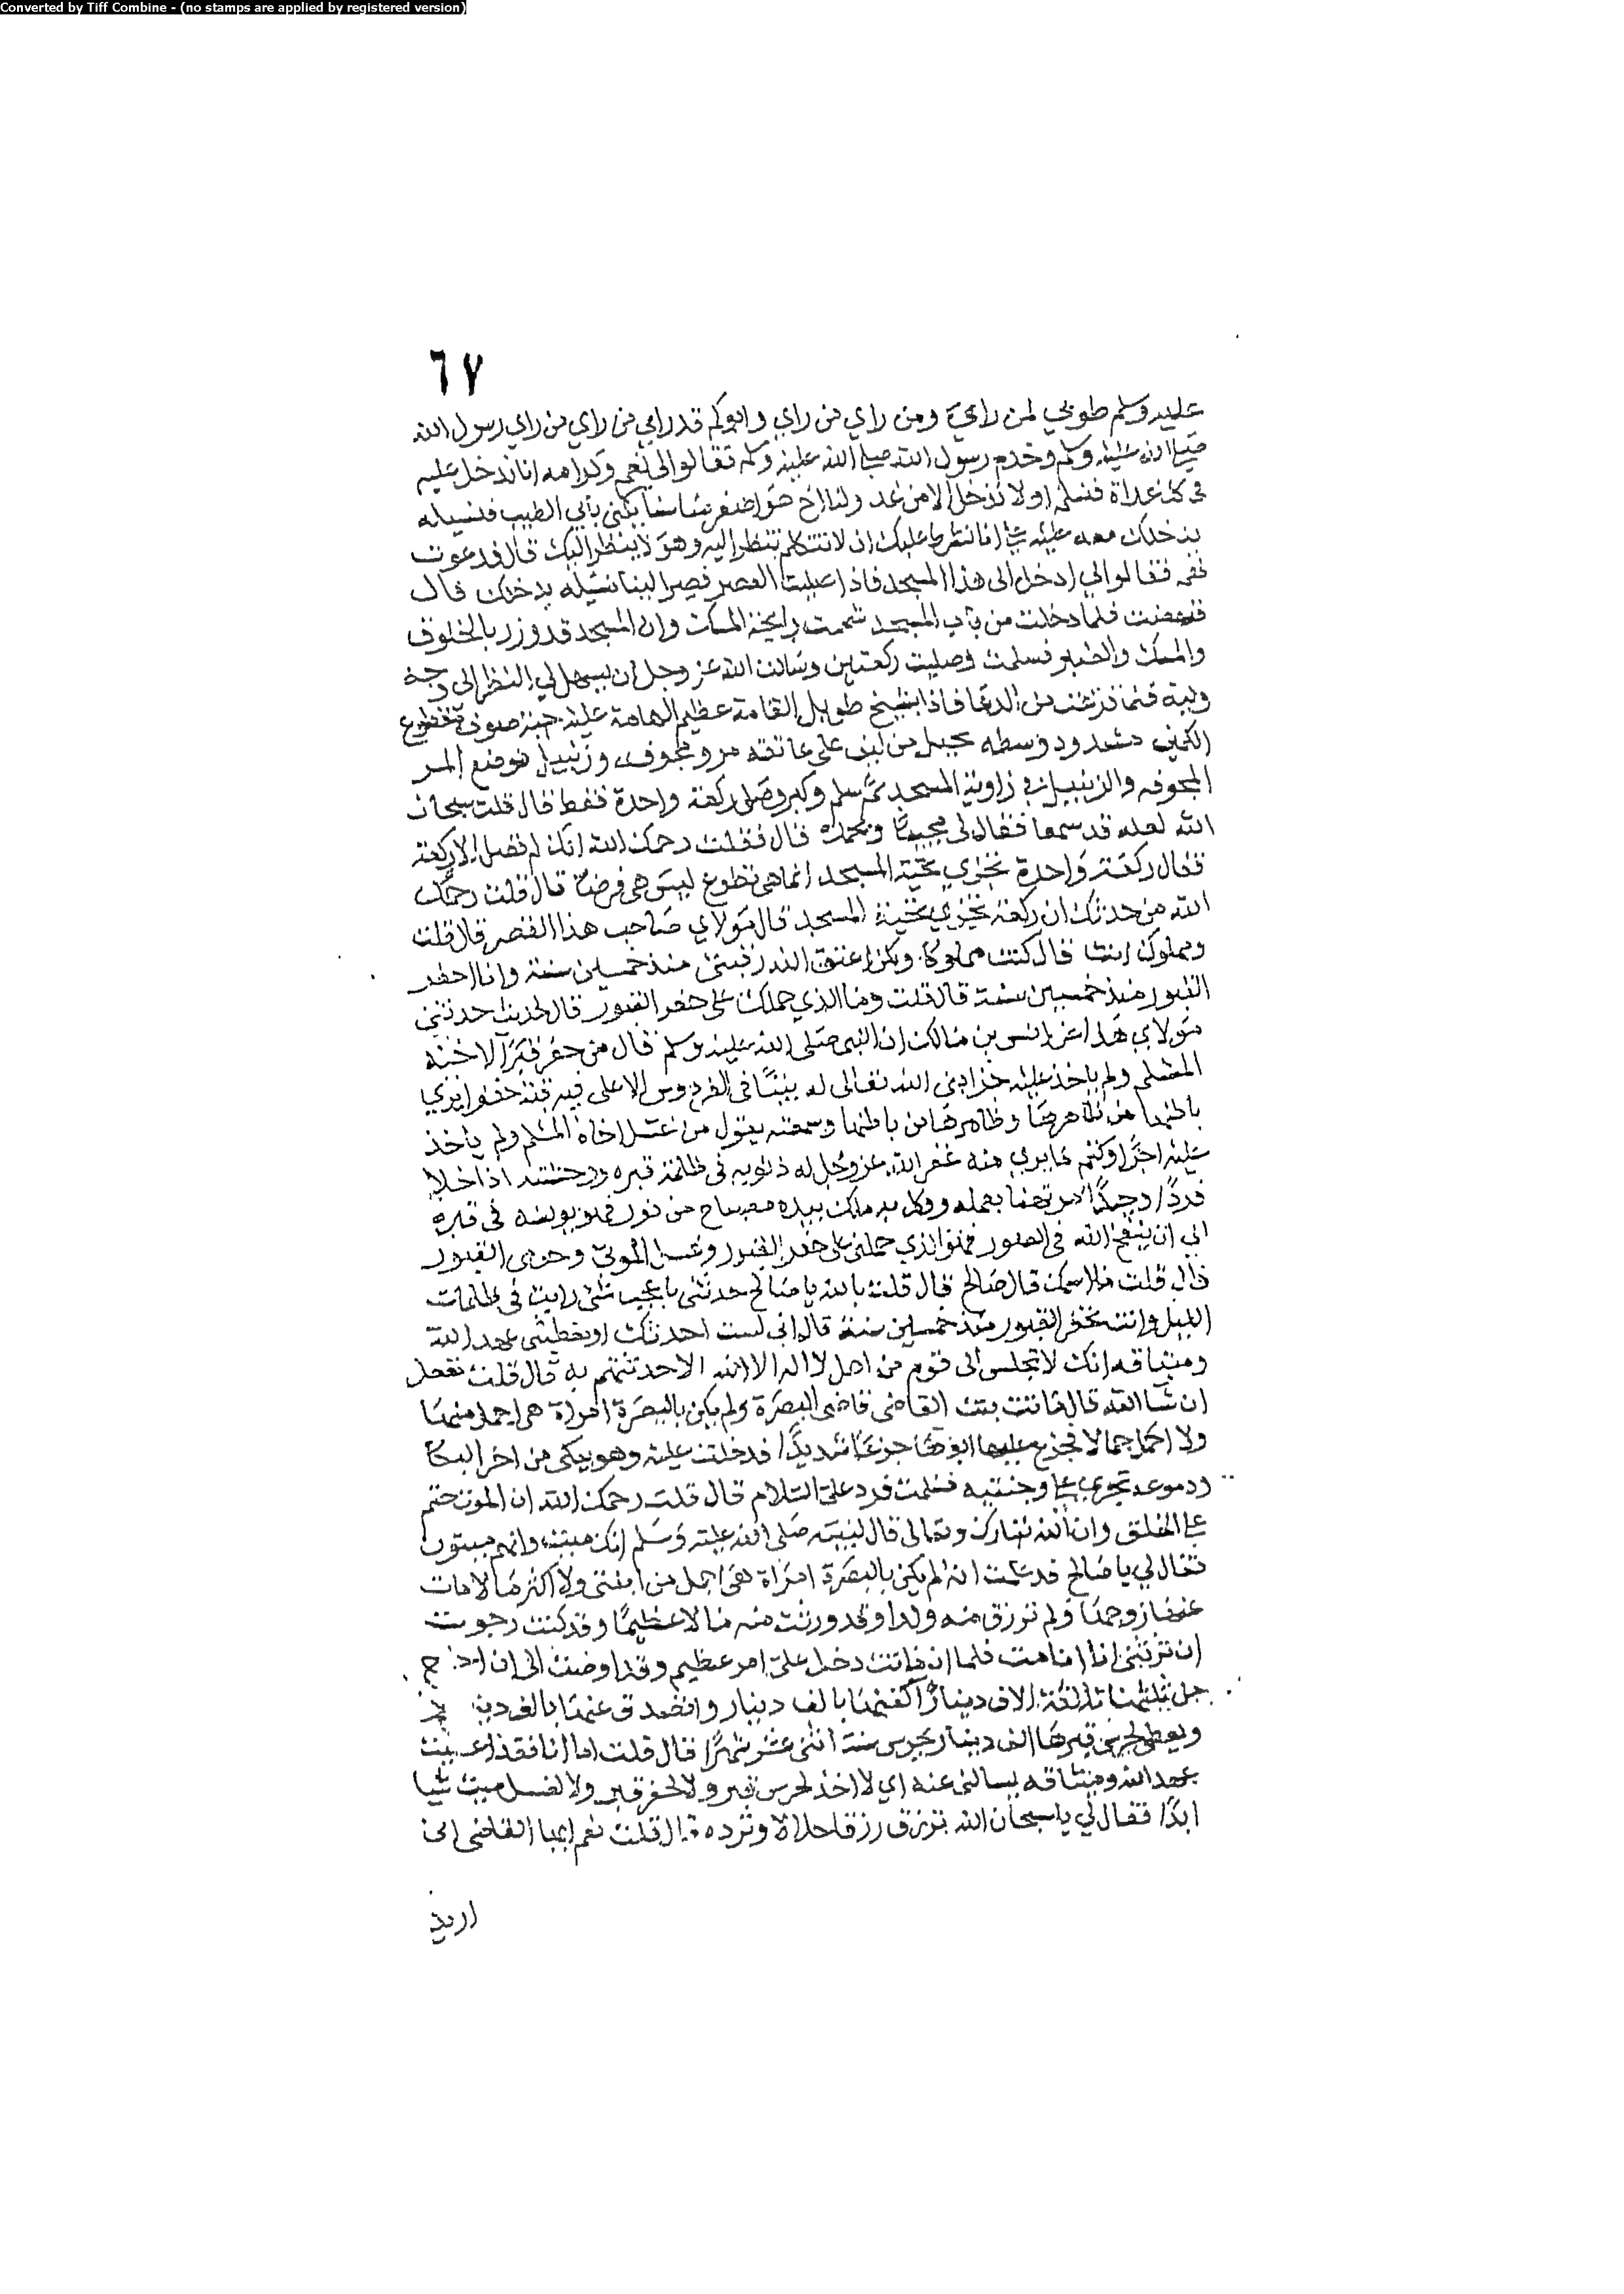 Converted by Tiff Combine - (no stamps are applied by registered version)
٦٧
عليه وسلم طوبي لمن راني ومن راي من راي وابوكم قد راي من راي من راي رسول الله
صلي الله عليه وسلم وخدم رسول الله صلي الله عليه وسلم فقالوا لي نعم وكرامه انا ندخل عليه
في كل غداة فنسلم ولا ندخل الا من غد ولنا اخ هو اصغر منا سنا يكني بابي الطيب فنسيله
يدخلك معه عليه علي انا نشرط عليك ان لا تتكلم تنظر اليه وهو لا ينظر اليك قال فدعوت
فقالوا لي ادخل الي هذا المسجد فاذا صليت العصر فصر الينا نسيله يدخلك قال
فنهضت فلما دخلت من باب المسجد شممت رايحة المسك وان المسجد قد وزر بالخلوق
والمسك والعنبر فسلمت وصليت ركعتين وسالت الله عز وجل ان يسهل لي النظر الي وجه
وليه فلما فرغت من الدعا فاذا بشيخ طويل القامة عظيم الهامة عليه جبة صوف مقطوع
الكمين مشدود وسطه بحبل من ليف علي عاتقه مر ومجوفه وزنبيل فوضع المر
المجوفه والزنبيل في زاوية المسجد ثم سلم وكبر وصلي ركعة واحدة فقط قال قلت سبحان
الله لعله قد سها فقال لي مجيبا وبحمده قال فقلت رحمك الله انك لم تصل الا ركعة
فقال ركعة واحدة تجزي تحية المسجد انما هي تطوع ليس هي فرضا قال قلت رحمك
الله من حدثك ان ركعة تجزي تحية المسجد قال مولاي صاحب هذا القصر قال قلت
ومملوك انت قال كنت مملوكا ولكن اعتق الله رقبتي منذ خمسين سنة وانا احفر
القبور منذ خمسين سنة قال قلت وما الذي حملك علي حفر القبور قال لحديث حدثني
مولاي هذا عن انس بن مالك ان النبي صلي الله عليه وسلم قال من حفر قبرا لاخيه
المسلم ولم ياخذ عليه جزا بني الله تعالي له بيتا في الفردوس الاعلي فيه قبة خضرا يري
باطنها من ظاهرها وظاهرها من باطنها وسمعته يقول من غسل اخاه المسلم ولم ياخذ
عليه اجرا وكتم ما يري منه غفر الله عز وجل له ذنوبه في ظلمة قبره ووحشته اذا خلا
فردا وحيدا مرتهنا بعمله ووكل به ملك بيده مصباح من نور فهو يونسه في قبره
الي ان ينفخ الله في الصور فهو الذي حملني علي حفر القبور وغسل الموتي وحرس القبور
قال قلت فما اسمك قال صالح قال قلت بالله يا صالح حدثني باعجب شي رايت في ظلمات
الليل وانت تحفر القبور منذ خمسين سنة قال اني لست احدثك او تعطيني عهد الله
وميثاقه انك لا تجلس الي قوم من اهل لا اله الا الله الا حدثتهم به قال قلت نفعل
ان شا الله قال ماتت بنت القاضي قاضي البصرة ولم يكن بالبصرة امراة هي اجمل منها
ولا اكمل جمالا فجزع عليها ابوها جزعا شديدا فدخلت عليه وهو يبكي من احر البكا
ودموعه تجري علي وجنتيه فسلمت فرد علي السلام قال قلت رحمك الله ان الموت حتم
علي الخلق وان الله تبارك وتعالي قال لنبيه صلي الله عليه وسلم انك ميت وانهم ميتون
فقال لي يا صالح قد علمت انه لم يكن بالبصرة امراة هي اجمل من ابنتي ولا اكثر مالا مات
عنها زوجها ولم ترزق منه ولدا وقد ورثت منه مالا عظيما وقد كنت رجوت
ان ترثني اذا انا مت فلما ان ماتت دخل علي امر عظيم وقد اوصت الي ان
ثلثها ثلاثة الاف دينار اكفنها بالف دينار واتصدق عنها بالف
ويعطي لحرس قبرها الف دينار يحرس سنة اثني عشر شهرا قال قلت اما انا فقد اعطيت
عهد الله وميثاقه يسالني عنه اي لا اخذ لحرس قبر ولا لحفر قبر ولا لغسل ميت شيا
ابدا فقال لي يا سبحان الله ترزق رزقا حلالا وترده قال قلت نعم ايها القاضي اني
اريد